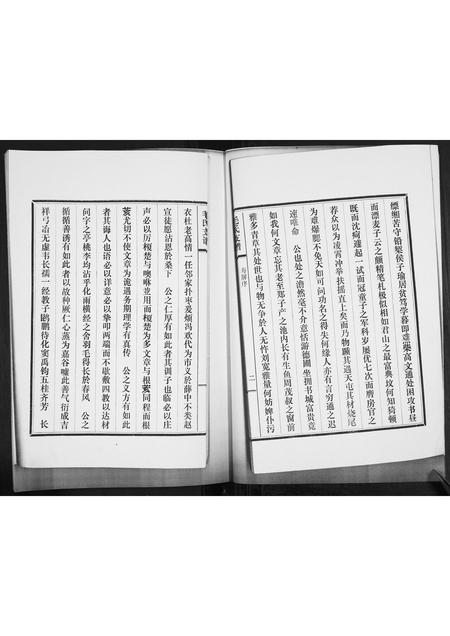 缥缃苦守铅椠侯子瑜居贫笃学暮即难蒙高文通处困攻书昼
而漂麦子云之颇精笔札极似相如君山之最富典坟何知猗顿
既而沈疴蘧起一试而冠童子之军科岁屡优七次而膺房官之
荐众以为凌霄冲举扶摇直上矣而乃物颐其遇天屯其材烧尾
为难爆腮不免天如可问功名之得失何缘人亦有言穷通之迟
速唯命　公也处之澹然毫不介意恬游德圃坐拥书城富贵竟
如我何文章忘其老至郑子产之池内长有生鱼周茂叔之窗前
雅多青草其处世也与物无争於人无忤刘宽雅量何妨婢仆污
寿屏序
二
衣杜老高情一任邻家扑枣爰烦冯欢代为市义於薛中不类赵
宣徒能沽恩於桑下　公之仁厚有如此者其训子也临必以庄
声必以厉榎楚与噢咻並用而榎楚为多文章与根窽同程而根
荄尤切不使文章为诡遇务期理学有真传　公之义方有如此
者其诲人也语必以详意必以挚叩两端而不歇敷四教以达材
问字之亭桃李均沾乎化雨横经之舍羽毛得长於春风　公之
循循善诱有如此者以故种厥仁心蒸为嘉谷嘘此善气衍成吉
祥弓冶无虚韦长孺一经教子鹍鹏待化窦禹钧五桂齐芳　长